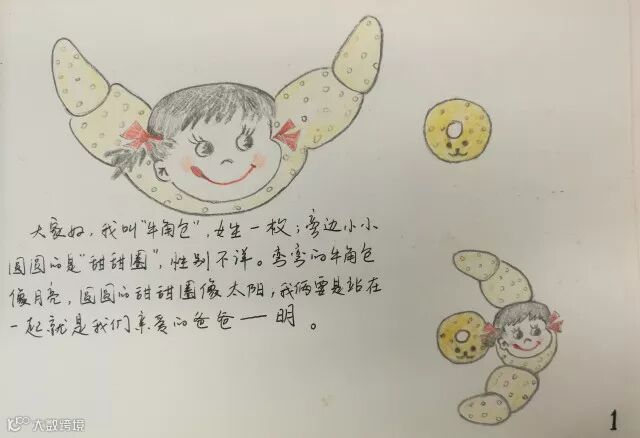 大家好,我叫“牛角包”,女生一枚;旁边小小
圆圆的是“甜甜圈”,性别不详。弯弯的牛角包
像月亮,圆圆的甜甜圈像太阳,我俩要是站在
一起就是我们亲爱的爸爸——明。
1
大数跨境